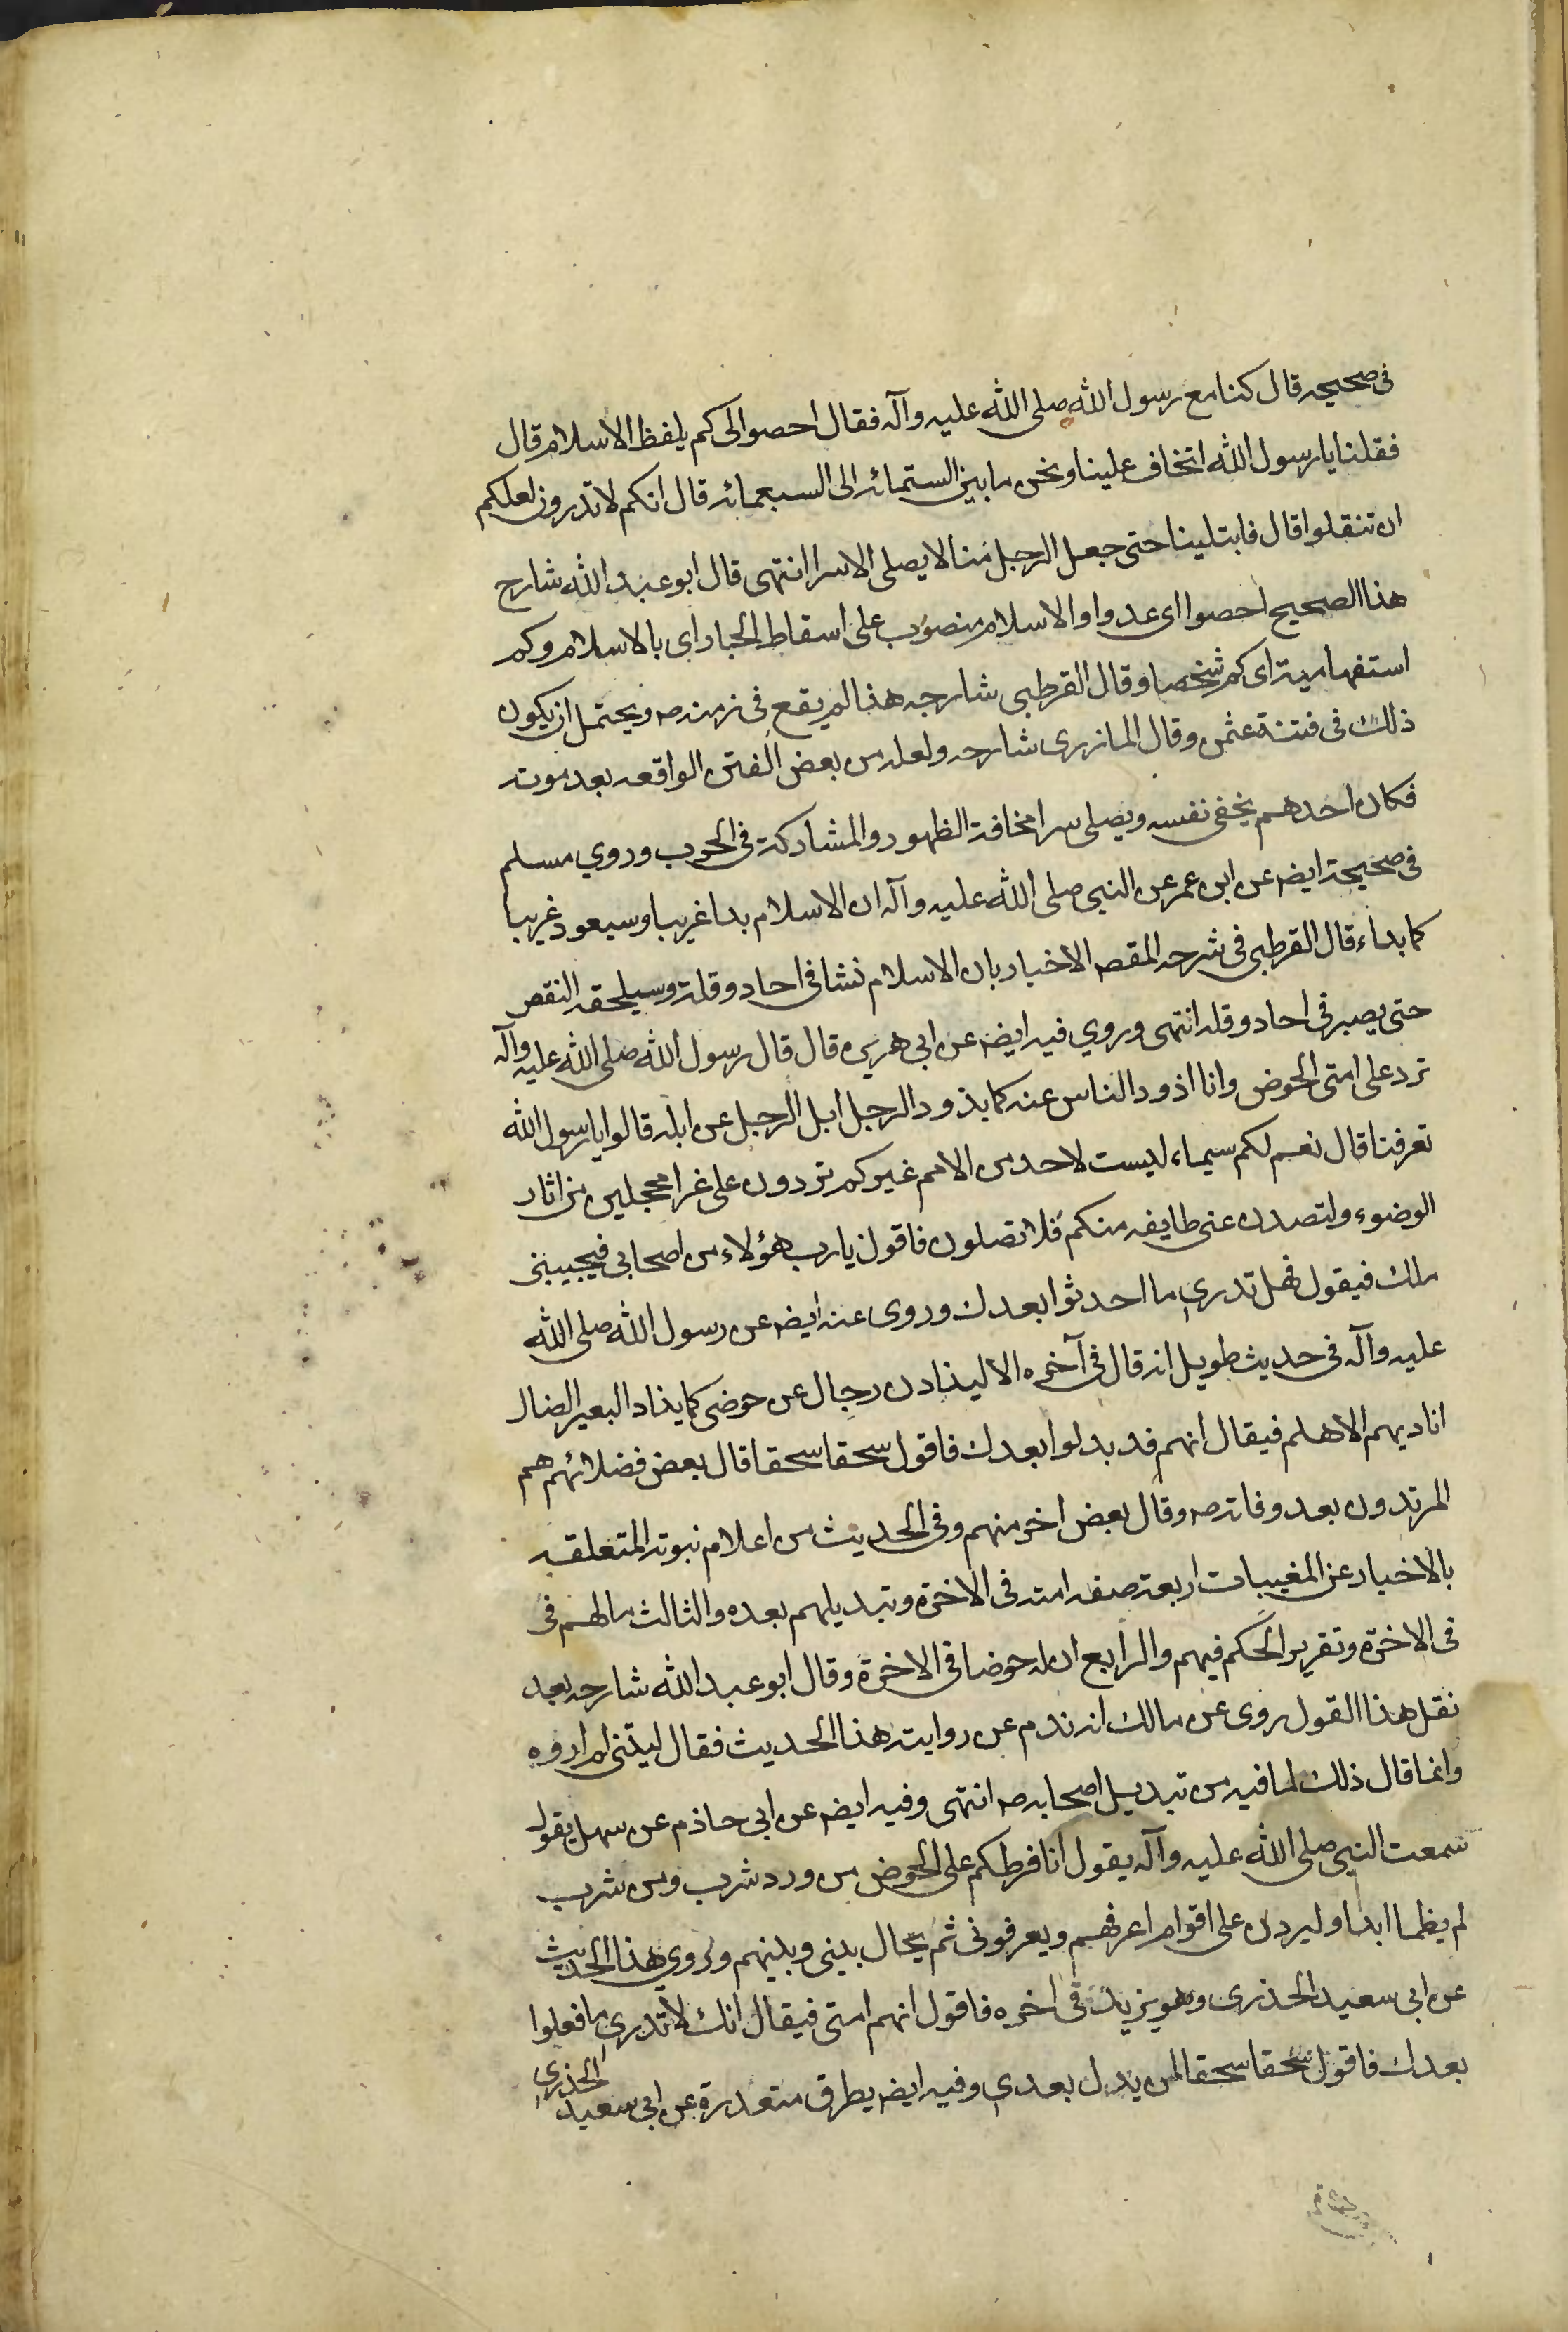 فى صحيحه قال كنا مع رسول الله صلى الله عليه وآله فقال احصوا لى كم يلفظ الاسلام قال
فقلنا يا رسول الله اتخاف علينا ونحن ما بين الستمائه الى السبعمائه قال انكم لا تدرون لعلكم
ان تنقلوا قال فابتلينا حتى جعل الرجل منا لا يصلى الا سرا انتهى قال ابو عبد الله شارح
هذا الصحيح احصوا اى عدوا والاسلام منصوب على اسقاط الجار اى بالاسلام وكم
استفهامية اى كم شخصا وقال القرطبى شارحه هذا لم يقع فى زمنه ص ويحتمل ان يكون
ذلك فى فتنة عثمن وقال المازرى شارحه ولعله من بعض الفتن الواقعه بعد موته
فكان احدهم يخفى نفسه ويصلى سرا مخافة الظهور والمشاركة فى الحرب وروي مسلم
فى صحيحة ايضه عن ابن عمر عن النبى صلى الله عليه وآله ان الاسلام بدا غريبا وسيعود غريبا
كما بداء قال القرطبى فى شرحه المقصه الاخبار بان الاسلام نشا فى احاد وقلة وسيلحقه النقص
حتى يصير فى احاد وقله انتهى وروي فيه ايضه عن ابى هريره قال قال رسول الله صلى الله عليه وآله
ترد على امتى الحوض وانا اذود الناس عنه كما يذود الرجل ابل الرجل عن ابله قالوا يا رسول الله
تعرفنا قال نعم لكم سيماء ليست لاحد من الامم غيركم تردون على غرا محجلين من اثار
الوضوء ولتصدن عنى طايفه منكم فلا تصلون فاقول يا رب هؤلاء من اصحابى فيجيبنى
ملك فيقول فهل تدرى ما احدثوا بعدك وروى عنه ايضه عن رسول الله صلى الله
عليه وآله فى حديث طويل انه قال فى آخره الا ليذادن رجال عن حوضى كما يذاد البعير الضال
اناديهم الا هلم فيقال انهم قد بدلوا بعدك فاقول سحقا سحقا قال بعض فضلائهم هم
المرتدون بعد وفاته ص وقال بعض اخر منهم وفى الحديث من اعلام نبوته المتعلقه
بالاخبار عن المغيبات اربعة صفه امته فى الاخرة وتبديلهم بعده والثالث ما لهم فى
فى الاخرة وتقرير الحكم فيهم والرابع ان له حوضا فى الاخرة وقال ابو عبد الله شارحه بعد
نقل هذا القول روى عن مالك انه ندم عن رواية هذا الحديث فقال ليتنى لم اروه
وانما قال ذلك لما فيه من تبديل اصحابه ص انتهى وفيه ايضه عن ابى حاذم عن سهل يقول
سمعت النبى صلى الله عليه وآله يقول انا فرطكم على الحوض من ورد شرب ومن شرب
لم يظما ابدا وليردن على اقوام اعرفهم ويعرفونى ثم يحال بينى وبينهم وروي هذا الحديث
عن ابى سعيد الخذرى وهو يزيد فى اخره فاقول انهم امتى فيقال انك لا تدرى ما فعلوا
بعدك فاقول سحقا سحقا لمن بدل بعدي وفيه ايضه بطرق متعددة عن ابى سعيد الخذري